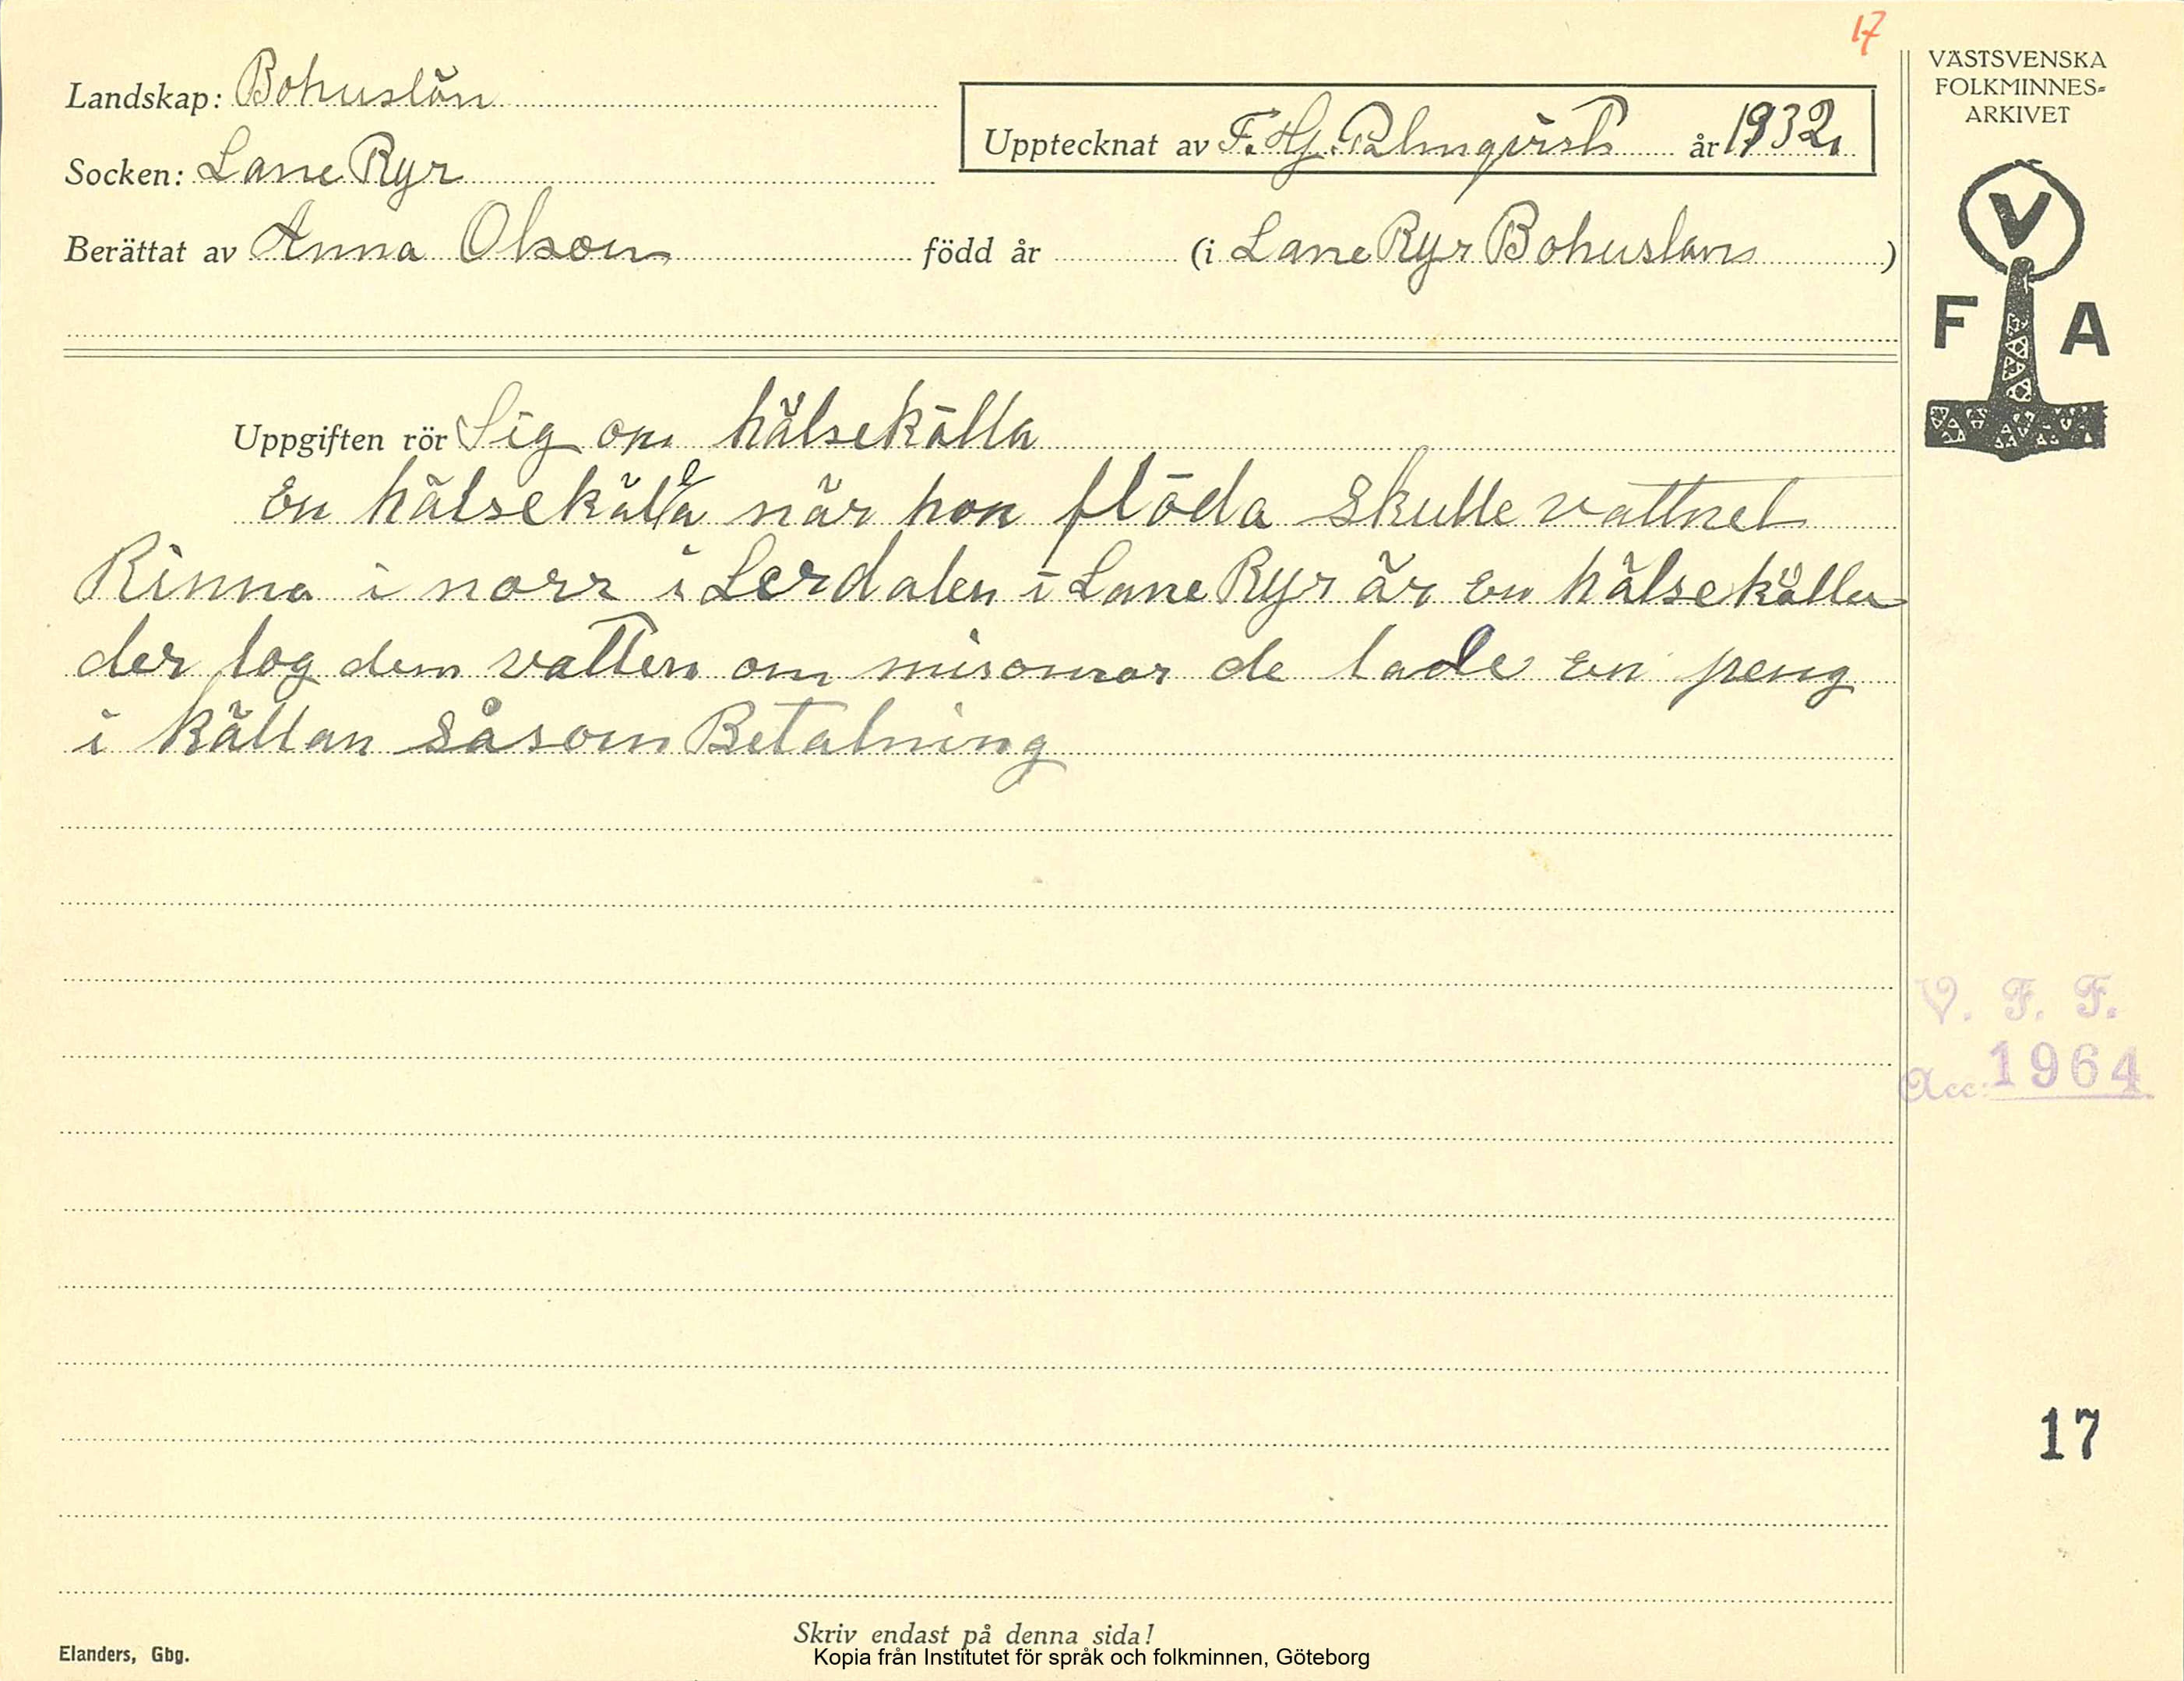 17
Landskap: Bohuslän
Socken: Lane Ryr
Upptecknat av F. Hj. Palmqvist år 1932.
Berättat av Anna Olson född år (i Lane Ryr Bohuslän)
VÄSTSVENSKA
FOLKMINNES-
ARKIVET
V
F A
Uppgiften rör Sig om hälsekälla
En hälsekälla när hon flöda skulle vattnet
Rinna i norr i Lerdalen i Lane Ryr är En hälsekälla
der tog dem vatten om misomar de lade En peng
i källan Såsom Betalning
V. F. F.
Acc. 1964
17
Skriv endast på denna sida!
Elanders, Gbg.
Kopia från Institutet för språk och folkminnen, Göteborg